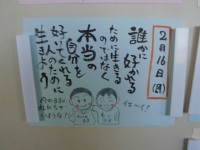 2月16日(月)
誰かに好かれる
ために生きる
のではなく
本当の
自分を
好いてくれる
人のために
生きよう
イェーイ!